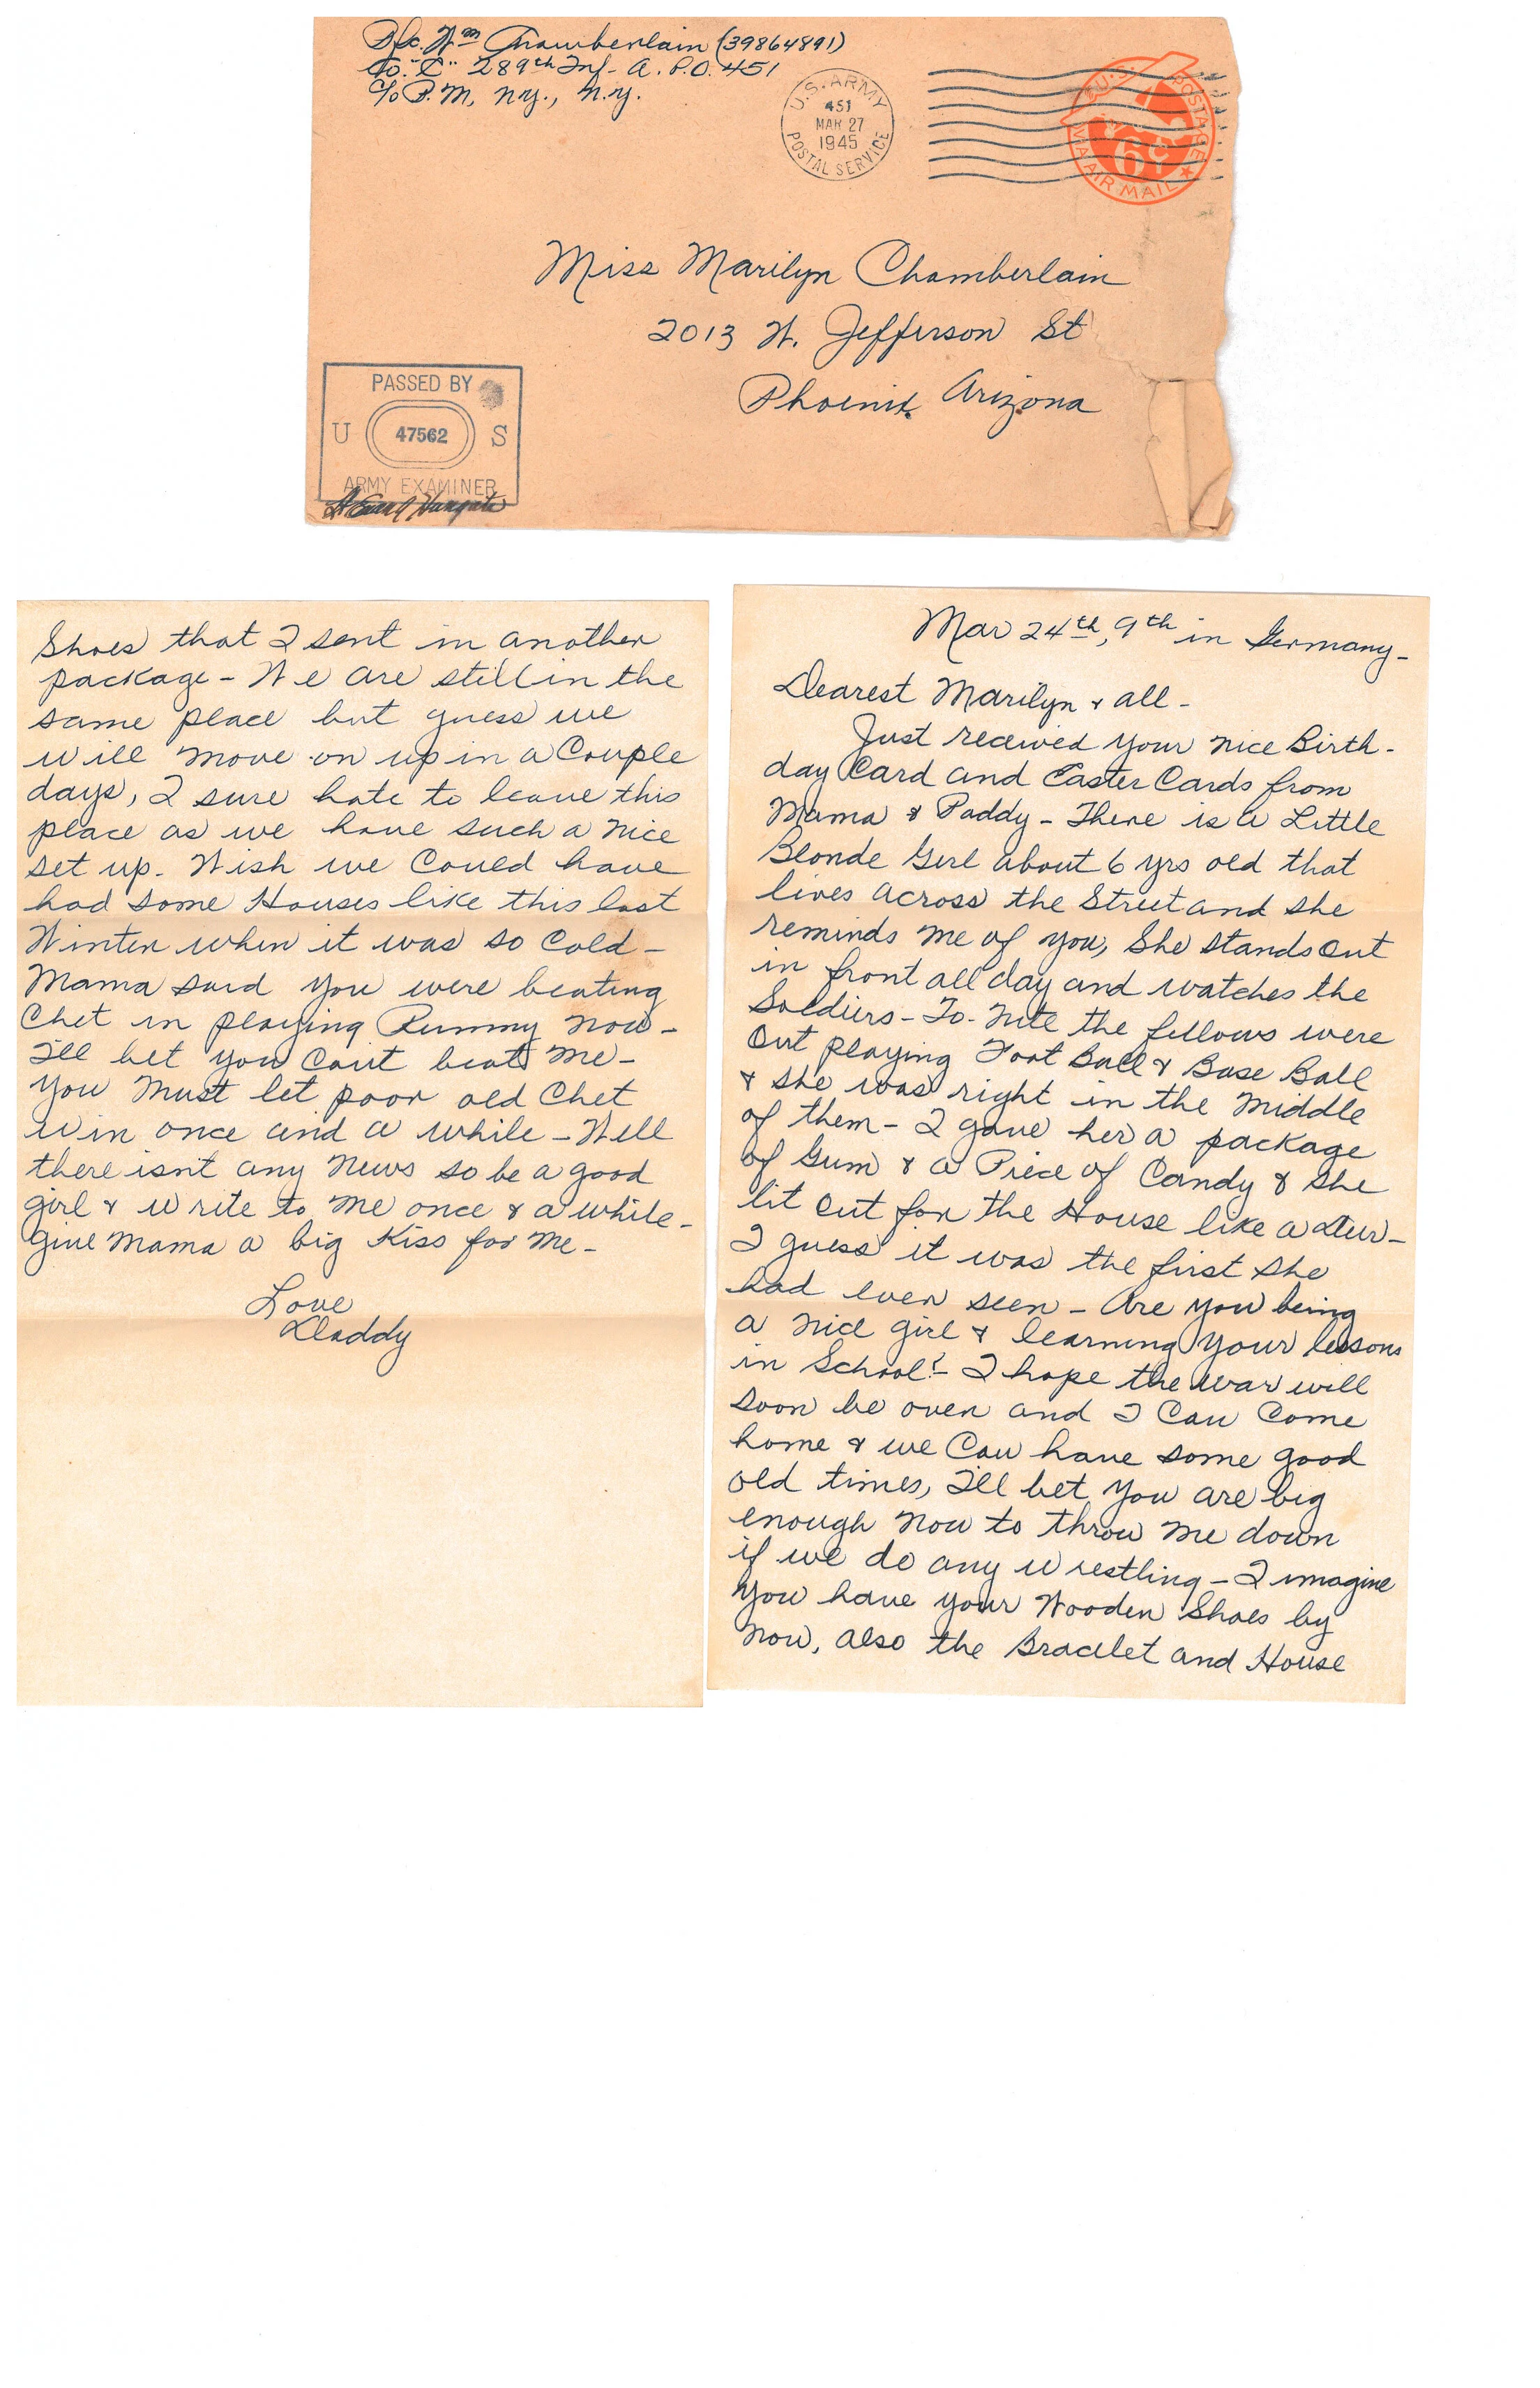 Pfc. Wm Chamberlain (39864891)
Co. "C" 289th Inf- A.P.O. 451
C/o P.M, N.Y., N.Y.
U.S. ARMY
451
MAR 27
1945
POSTAL SERVICE
U.S. POSTAGE
6¢
VIA AIR MAIL
Miss Marilyn Chamberlain
2013 W. Jefferson St
Phoenix, Arizona
PASSED BY
U 47562 S
ARMY EXAMINER
Mar 24th, 9th in Germany-
Dearest Marilyn & all-
Just received your nice Birth-
day Card and Easter Cards from
Mama & Paddy- There is a Little
Blonde Girl about 6 yrs old that
lives across the Street and she
reminds me of you, She stands out
in front all day and watches the
Soldiers- To-nite the fellows were
out playing Foot Ball & Base Ball
& she was right in the middle
of them- I gave her a package
of Gum & a Piece of Candy & she
lit out for the House like a deer-
I guess it was the first she
had ever seen- Are you being
a nice girl & learning your lessons
in School?- I hope the war will
soon be over and I can come
home & we can have some good
old times, I'll bet you are big
enough now to throw me down
if we do any wrestling- I imagine
you have your Wooden Shoes by
now, also the Bracelet and House
Shoes that I sent in another
package- We are still in the
same place but guess we
will move on up in a Couple
days, I sure hate to leave this
place as we have such a nice
set up. Wish we Could have
had some Houses like this last
Winter when it was so Cold-
Mama said you were beating
Chet in playing Rummy now-
I'll bet you can't beat me-
you must let poor old Chet
win once and a while- Well
there isn't any News so be a good
girl & write to me once & a while-
give Mama a big Kiss for me-
Love
Daddy